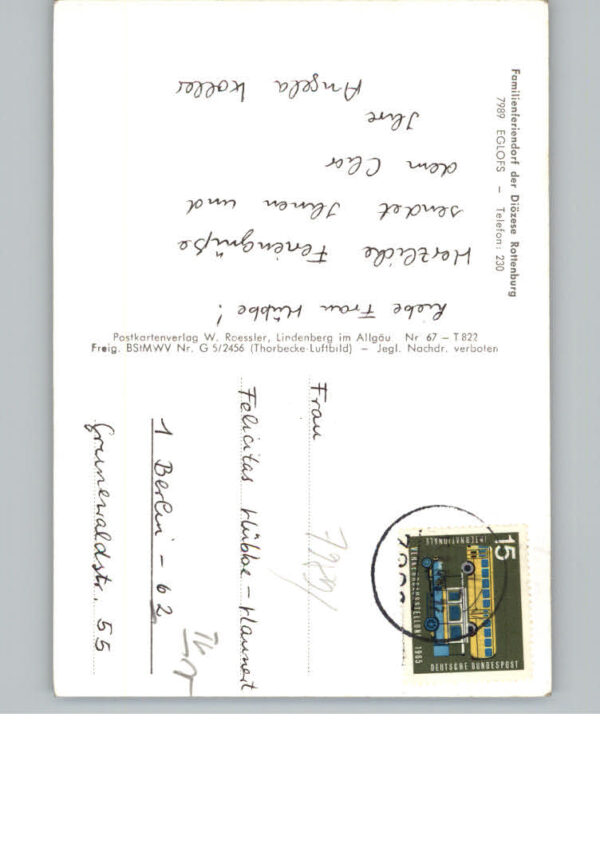 Familienferiendorf der Diözese Rottenburg
7989 EGLOFS – Telefon: 230
Liebe Frau Hübbe!
Herzliche Feriengrüße
sendet Ihnen und
dem Chor
Ihre
Angela Koller
Postkartenverlag W. Roessler, Lindenberg im Allgäu Nr 67 – T 822
Freig. BStMWV Nr. G 5/2456 (Thorbecke-Luftbild) – Jegl. Nachdr. verboten
15
INTERNATIONALE
VERKEHRSAUSSTELLUNG 1965
DEUTSCHE BUNDESPOST
7989
Frau
Felicitas Hübbe-Haunert
1 Berlin - 62
Grunewaldstr. 55